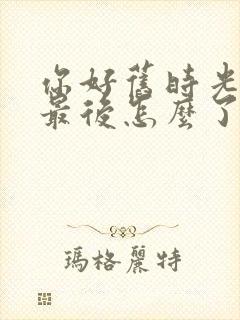 你好舊時光
最後怎麼了
瑪格麗特